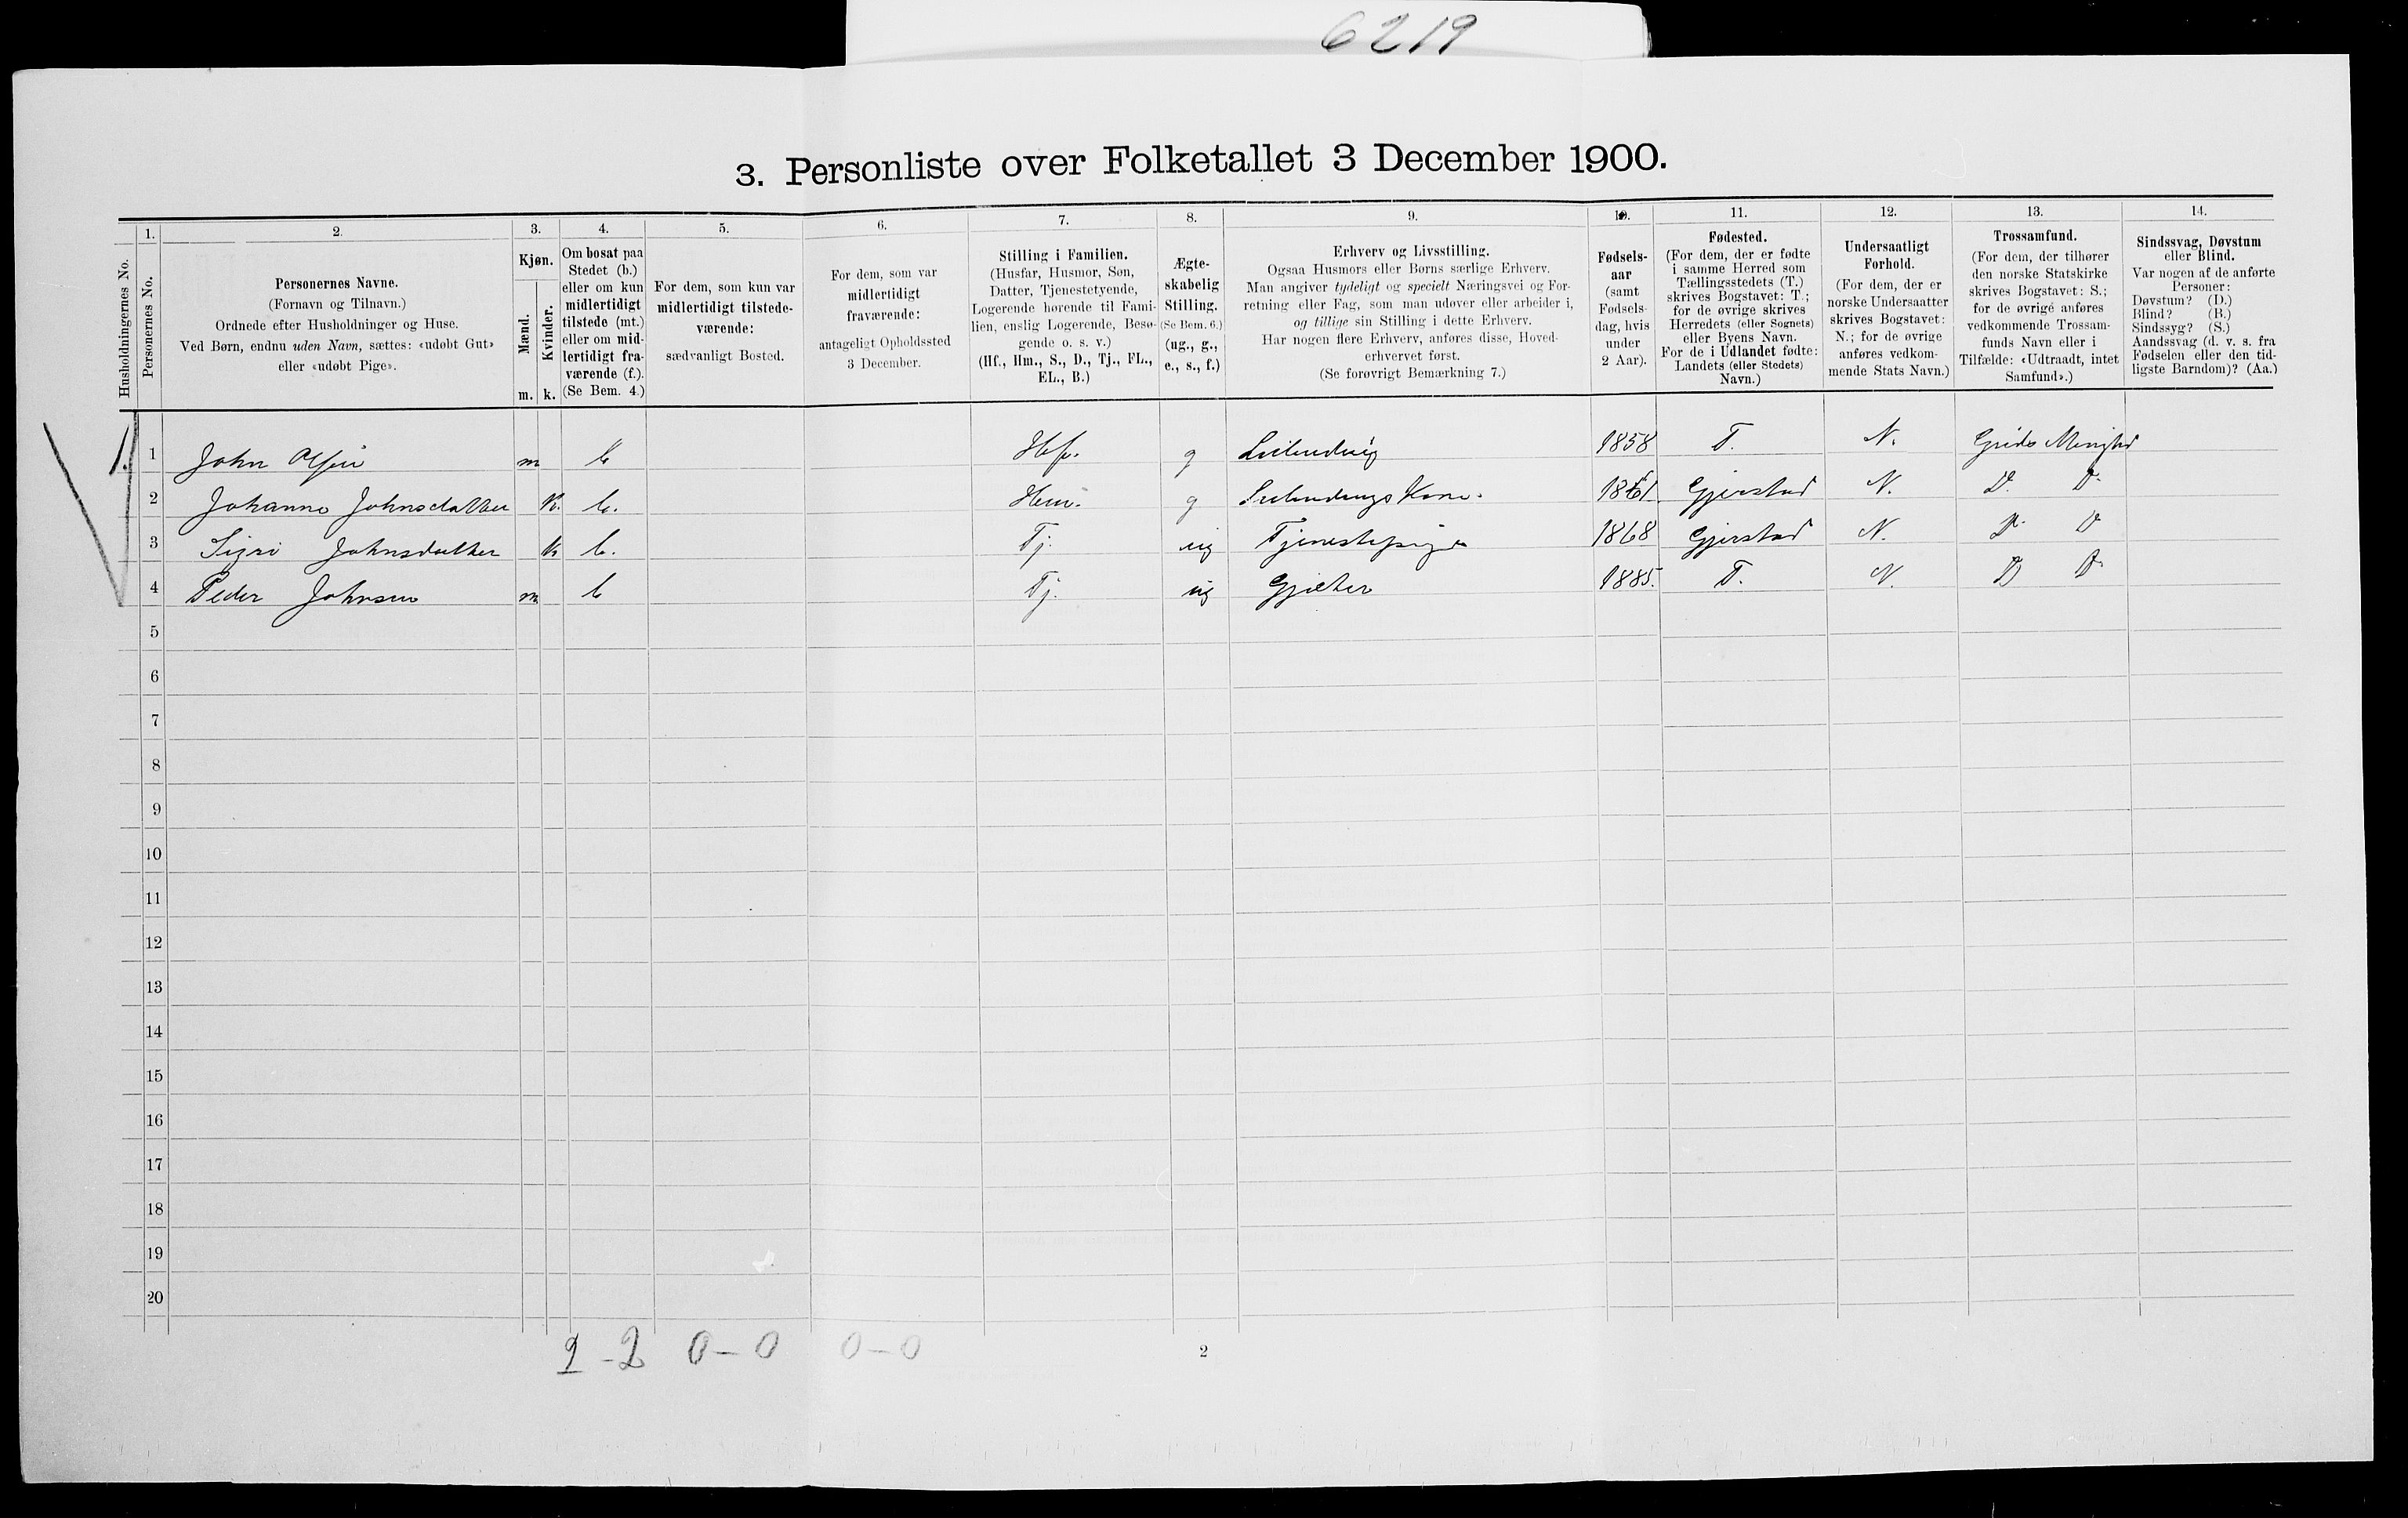 6219
3. Personliste over Folketallet 3 December 1900.
Husholdningernes No.
1.
Personernes No.
2.
Personernes Navne.
(Fornavn og Tilnavn.)
Ordnede efter Husholdninger og Huse.
Ved Børn, endnu uden Navn, sættes: «udøbt Gut»
eller «udøbt Pige».
3.
Kjøn.
Mænd.
Kvinder.
m. k.
4.
Om bosat paa
Stedet (b.)
eller om kun
midlertidigt
tilstede (mt.)
eller om mid-
lertidigt fra-
værende (f.).
(Se Bem. 4.)
5.
For dem, som kun var
midlertidigt tilstede-
værende:
sædvanligt Bosted.
6.
For dem, som var
midlertidigt
fraværende:
antageligt Opholdssted
3 December.
7.
Stilling i Familien.
(Husfar, Husmor, Søn,
Datter, Tjenestetyende,
Logerende hørende til Fami-
lien, enslig Logerende, Besø-
gende o. s. v.)
(Hf., Hm., S., D., Tj., FL.,
EL., B.)
8.
Ægte-
skabelig
Stilling.
(Se Bem. 6.)
(ug., g.,
e., s., f.)
9.
Erhverv og Livsstilling.
Ogsaa Husmors eller Børns særlige Erhverv.
Man angiver tydeligt og specielt Næringsvei og For-
retning eller Fag, som man udøver eller arbeider i,
og tillige sin Stilling i dette Erhverv.
Har nogen flere Erhverv, anføres disse, Hoved-
erhvervet først.
(Se forøvrigt Bemærkning 7.)
10.
Fødsels-
aar
(samt
Fødsels-
dag, hvis
under
2 Aar).
11.
Fødested.
(For dem, der er fødte
i samme Herred som
Tællingsstedets (T.)
skrives Bogstavet: T.;
for de øvrige skrives
Herredets (eller Sognets)
eller Byens Navn.
For de i Udlandet fødte:
Landets (eller Stedets)
Navn.)
12.
Undersaatligt
Forhold.
(For dem, der er
norske Undersaatter
skrives Bogstavet:
N.; for de øvrige
anføres vedkom-
mende Stats Navn.)
13.
Trossamfund.
(For dem, der tilhører
den norske Statskirke
skrives Bogstavet: S.;
for de øvrige anføres
vedkommende Trossam-
funds Navn eller i
Tilfælde: «Udtraadt, intet
Samfund».)
14.
Sindssvag, Døvstum
eller Blind.
Var nogen af de anførte
Personer:
Døvstum? (D.)
Blind? (B.)
Sindssyg? (S.)
Aandssvag (d. v. s. fra
Fødselen eller den tid-
ligste Barndom)? (Aa.)
1. 1 John m b Hf. g 1858 T. N.
2 Johanne Johnsdatter k. b. Hm. g Kone. 1861 Gjerstad N. D. D.
3 Sigri Johnsdatter k b. Tj. ug Tjenestepige 1868 Gjerstad N. D. D
4 Peder Johnsen m b Tj. ug Gjæter 1885. T. N. D D
5
6
7
8
9
10
11
12
13
14
15
16
17
18
19
20
2-2 0-0 0-0
2